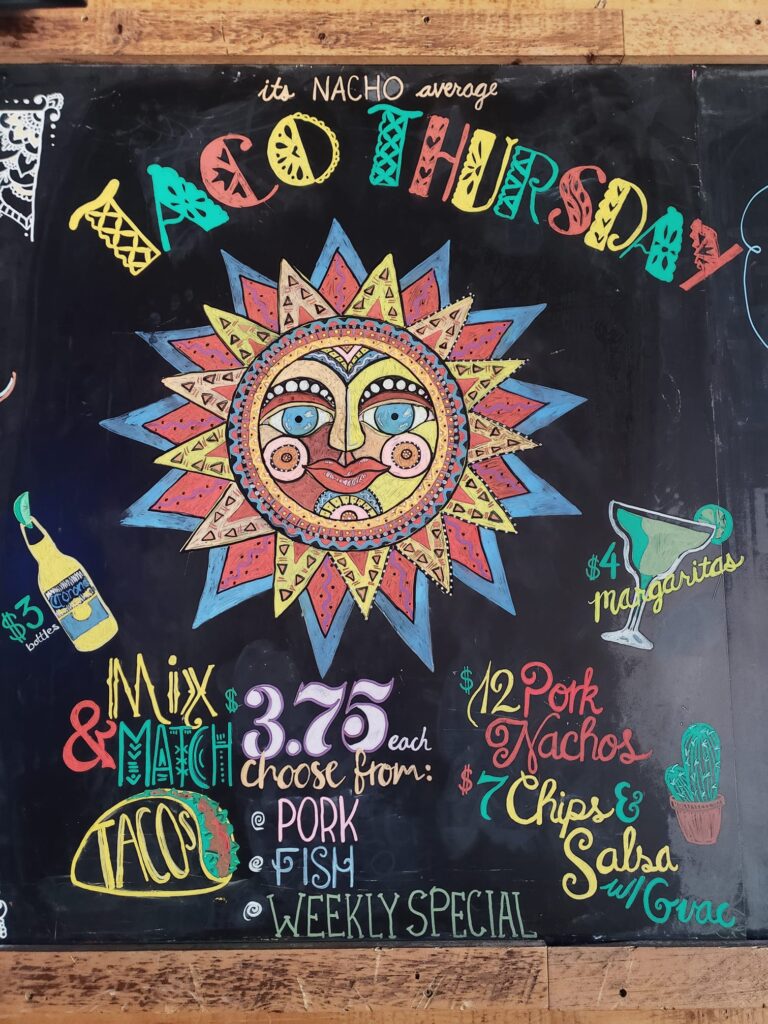 its NACHO average
TACO THURSDAY
Corona
$3
bottles
$4
margaritas
Mix
& MATCH
TACOS
$3.75 each
choose from:
PORK
FISH
WEEKLY SPECIAL
$12 Pork
Nachos
$7 Chips &
Salsa
w/ Guac